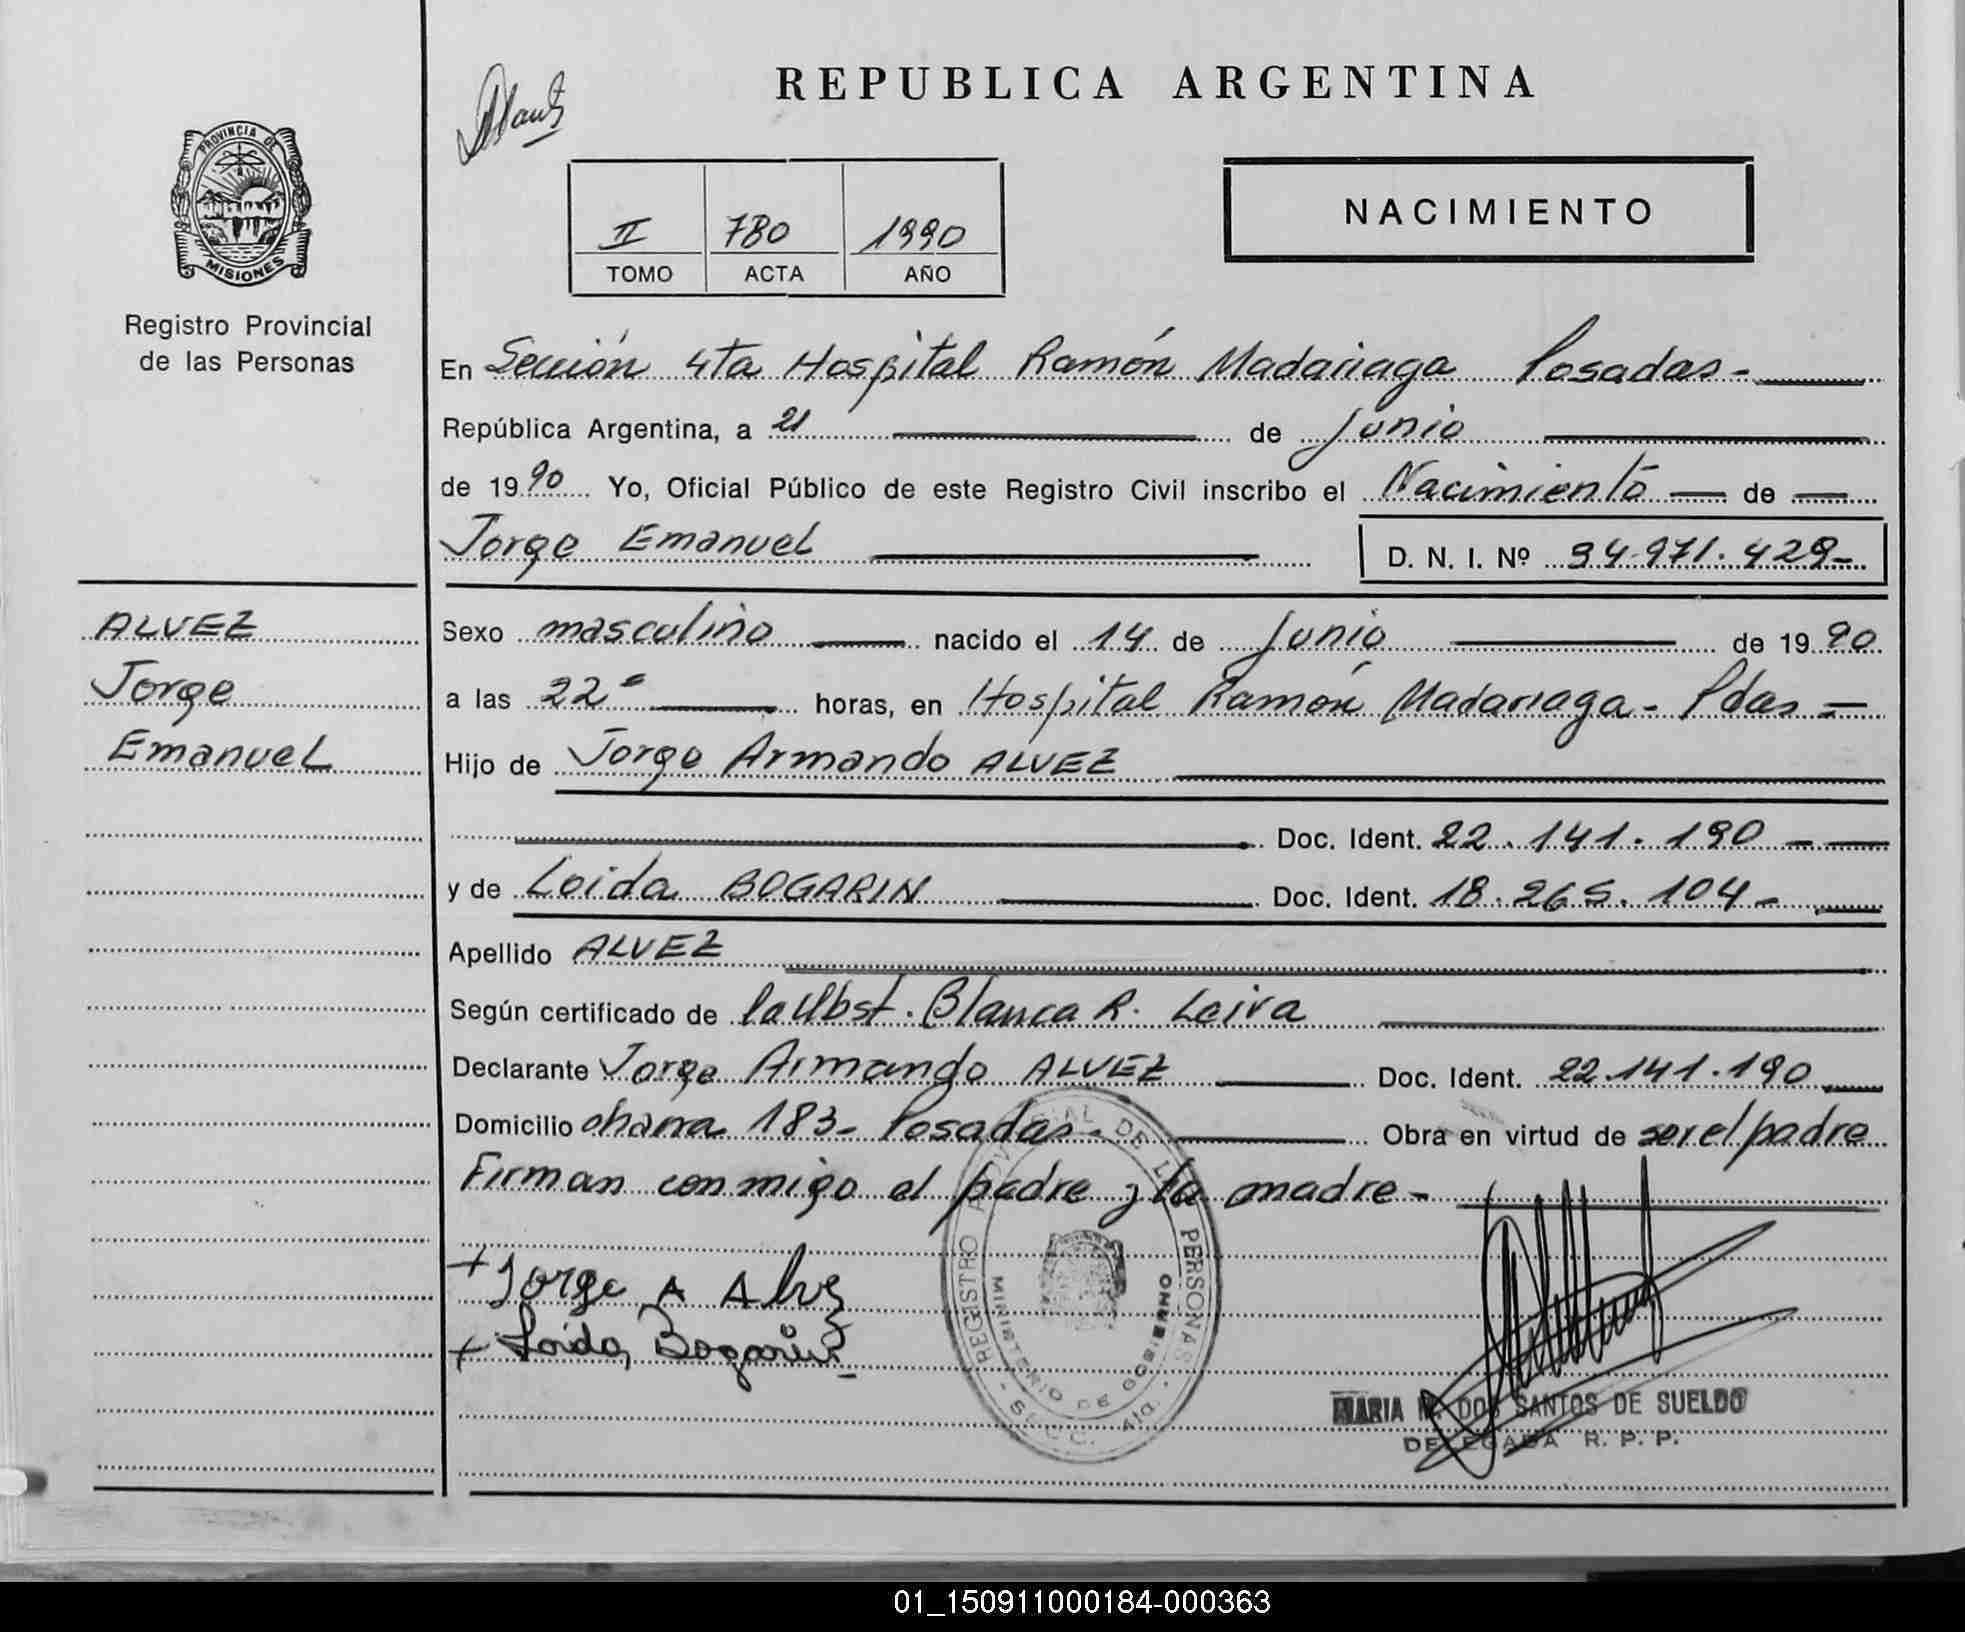 REPUBLICA ARGENTINA
PROVINCIA DE
MISIONES
Registro Provincial
de las Personas
II 780 1990
TOMO ACTA AÑO
NACIMIENTO
En Sección 4ta Hospital Ramón Madariaga Posadas-
República Argentina, a 21 de Junio
de 1990 Yo, Oficial Público de este Registro Civil inscribo el Nacimiento de
Jorge Emanuel D. N. I. Nº 34.971.429-
ALVEZ
Jorge
Emanuel
Sexo masculino nacido el 14 de Junio de 1990
a las 22- horas, en Hospital Ramón Madariaga- Pdas
Hijo de Jorge Armando ALVEZ
Doc. Ident. 22.141.190-
y de Loida BOGARIN Doc. Ident. 18.265.104-
Apellido ALVEZ
Según certificado de la Obst. Blanca R. Leiva
Declarante Jorge Armando ALVEZ Doc. Ident. 22.141.190
Domicilio 183- Posadas- Obra en virtud de ser el padre
Firman conmigo el padre y la madre-
+ Jorge A Alvez
+ Loida Bogarin
REGISTRO PROVINCIAL DE LAS PERSONAS
MINISTERIO DE GOBIERNO
SECC. 4ta.
MARIA M. DOS SANTOS DE SUELDO
DELEGADA R. P. P.
01_150911000184-000363